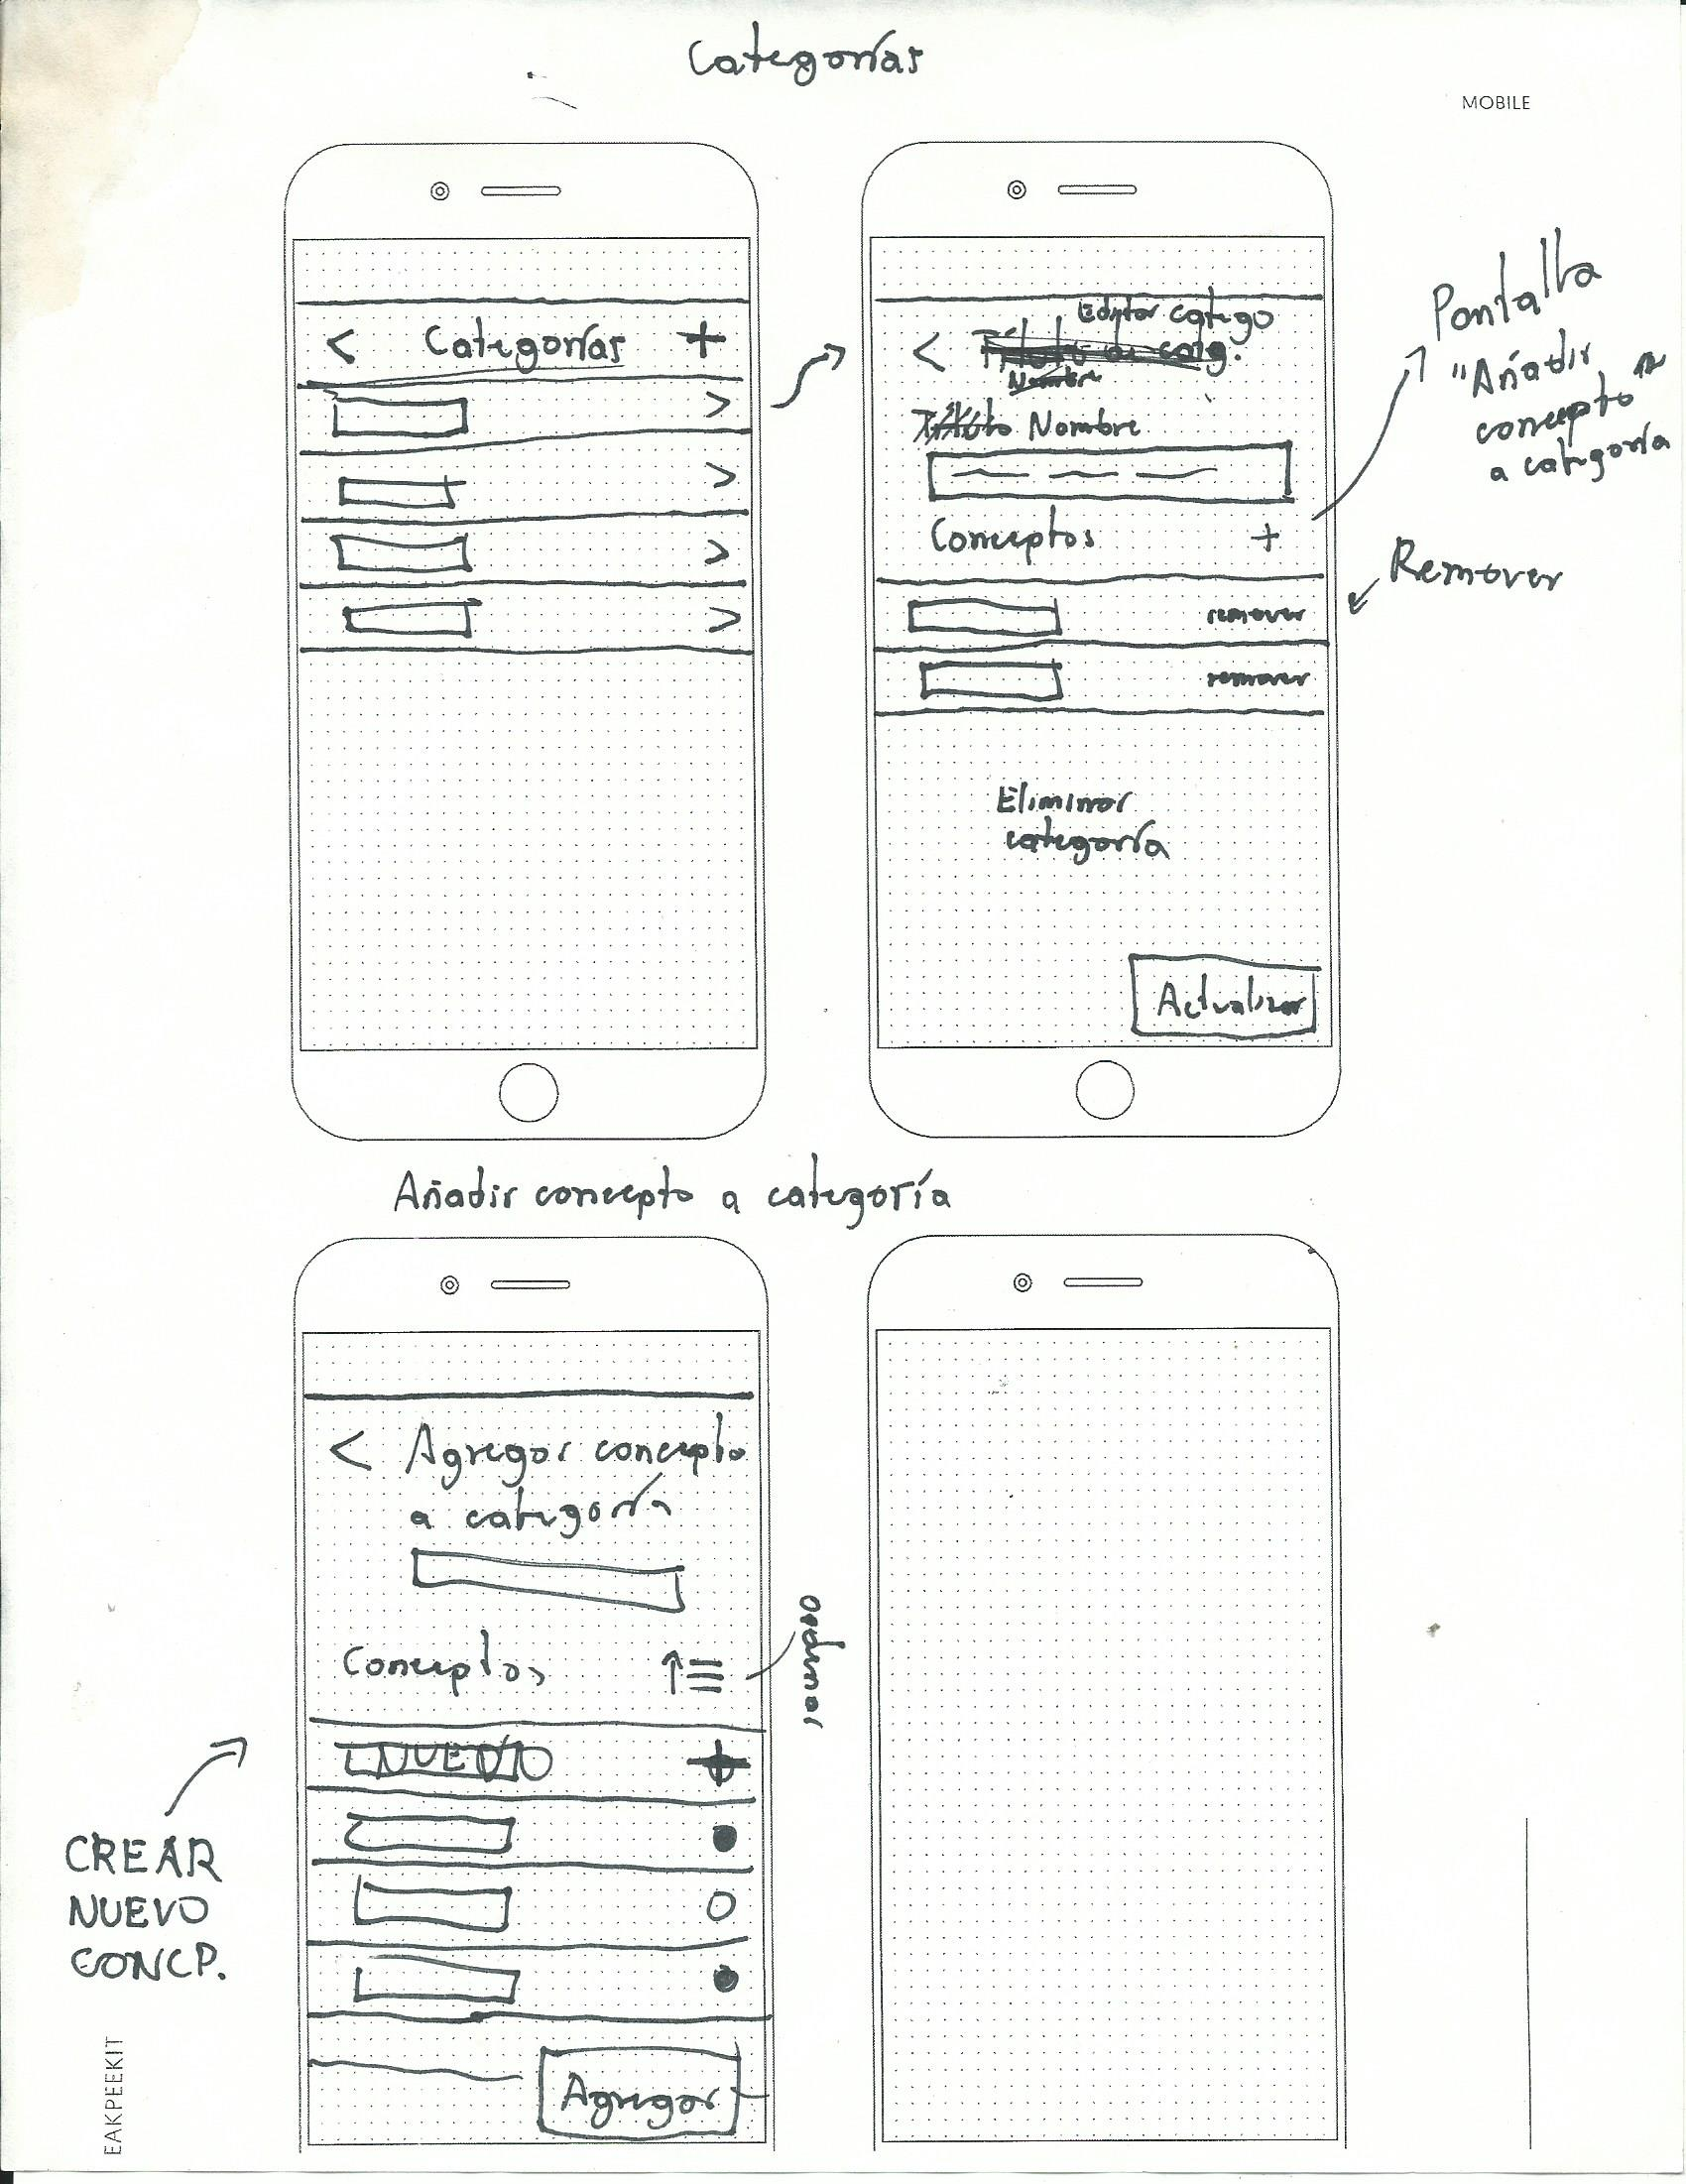 Categorías
MOBILE
< Categorías +
>
>
>
>
Editar catego
<
Nombre
Nombre
Conceptos +
remover
remover
Eliminar
categoría
Actualizar
Pantalla
"Añadir
concepto"
a categoría
Remover
Añadir concepto a categoría
< Agregar concepto
a categoría
Conceptos
ordenar
NUEVO +
Agregar
CREAR
NUEVO
CONCP.
EAKPEEKIT